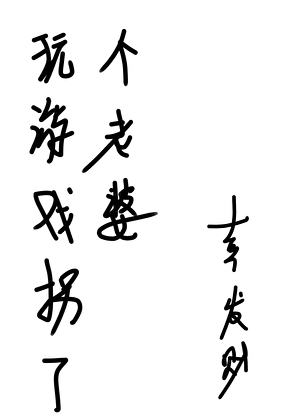 玩游戏拐了
个老婆
发财